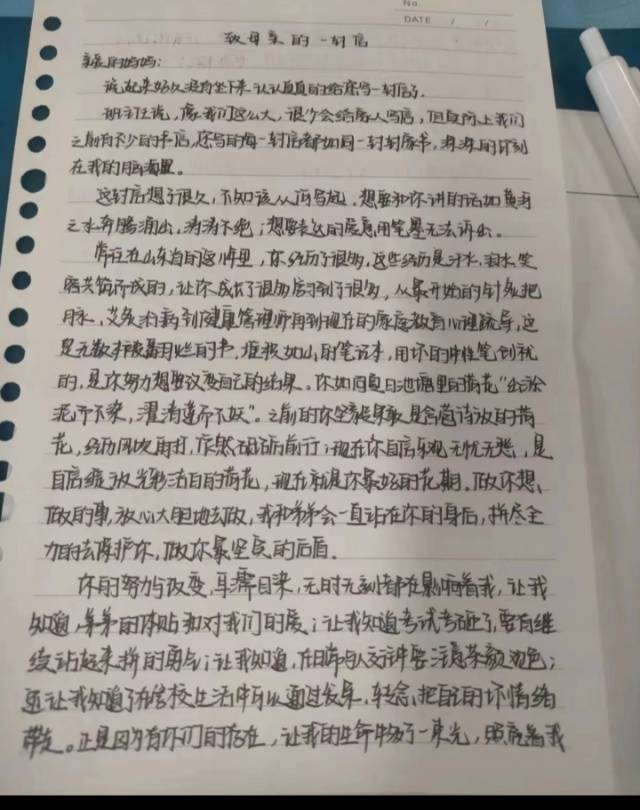 No.
DATE / /
致母亲的一封信
亲爱的妈妈:
说起来好久没有坐下来认认真真的给您写一封信了.
班主任说,像我们这么大,很少会给家人写信,但反问上我们
之前有不少的手信,您写的每一封信都如同一封封家书,深深的印刻
在我的脑海里。
这封信想了很久,不知该从何写起.想要和你讲的话如黄河
之水奔腾涌出,涛涛不绝;想要表达的爱意用笔墨无法诉出。
常往在山东省的这個里,你经历了很多,这些经历是汗水、泪水、笑
容共筑而成的,让你成长了很多学习到了很多,从最开始的针灸把
脉、艾灸术再到健康管理师再到现在的家庭教育心理疏导,这
是无数本被翻烂的书,堆积如山的笔记本,用坏的中性笔创就
的,是你努力想要改变自己的结果。你如同夏日池塘里的荷花“出淤
泥而不染,濯清涟而不妖”。之前的你坚毅果敢是含苞待放的荷
花,经历风吹雨打,依然砥砺前行;现在你自信乐观无忧无愁,是
自信绽放光彩夺目的荷花,现在就是你最好的花期。做你想
做的事,放心大胆地去做,我和爷爷会一直站在你的身后,拼尽全
力的去保护你,做你最坚实的后盾.
你的努力与改变,耳濡目染,无时无刻都在影响着我,让我
知道,爷爷的体贴和对我们的爱;让我知道考试考砸了,要有继
续站起来拼的勇气;让我知道,在日常与人交谈中要注意茶颜观色;
还让我知道了在学校生活中可以通过发呆、转念、把自己的坏情绪
带走。正是因为有你们的存在,让我的生命中多了一束光,照亮着我